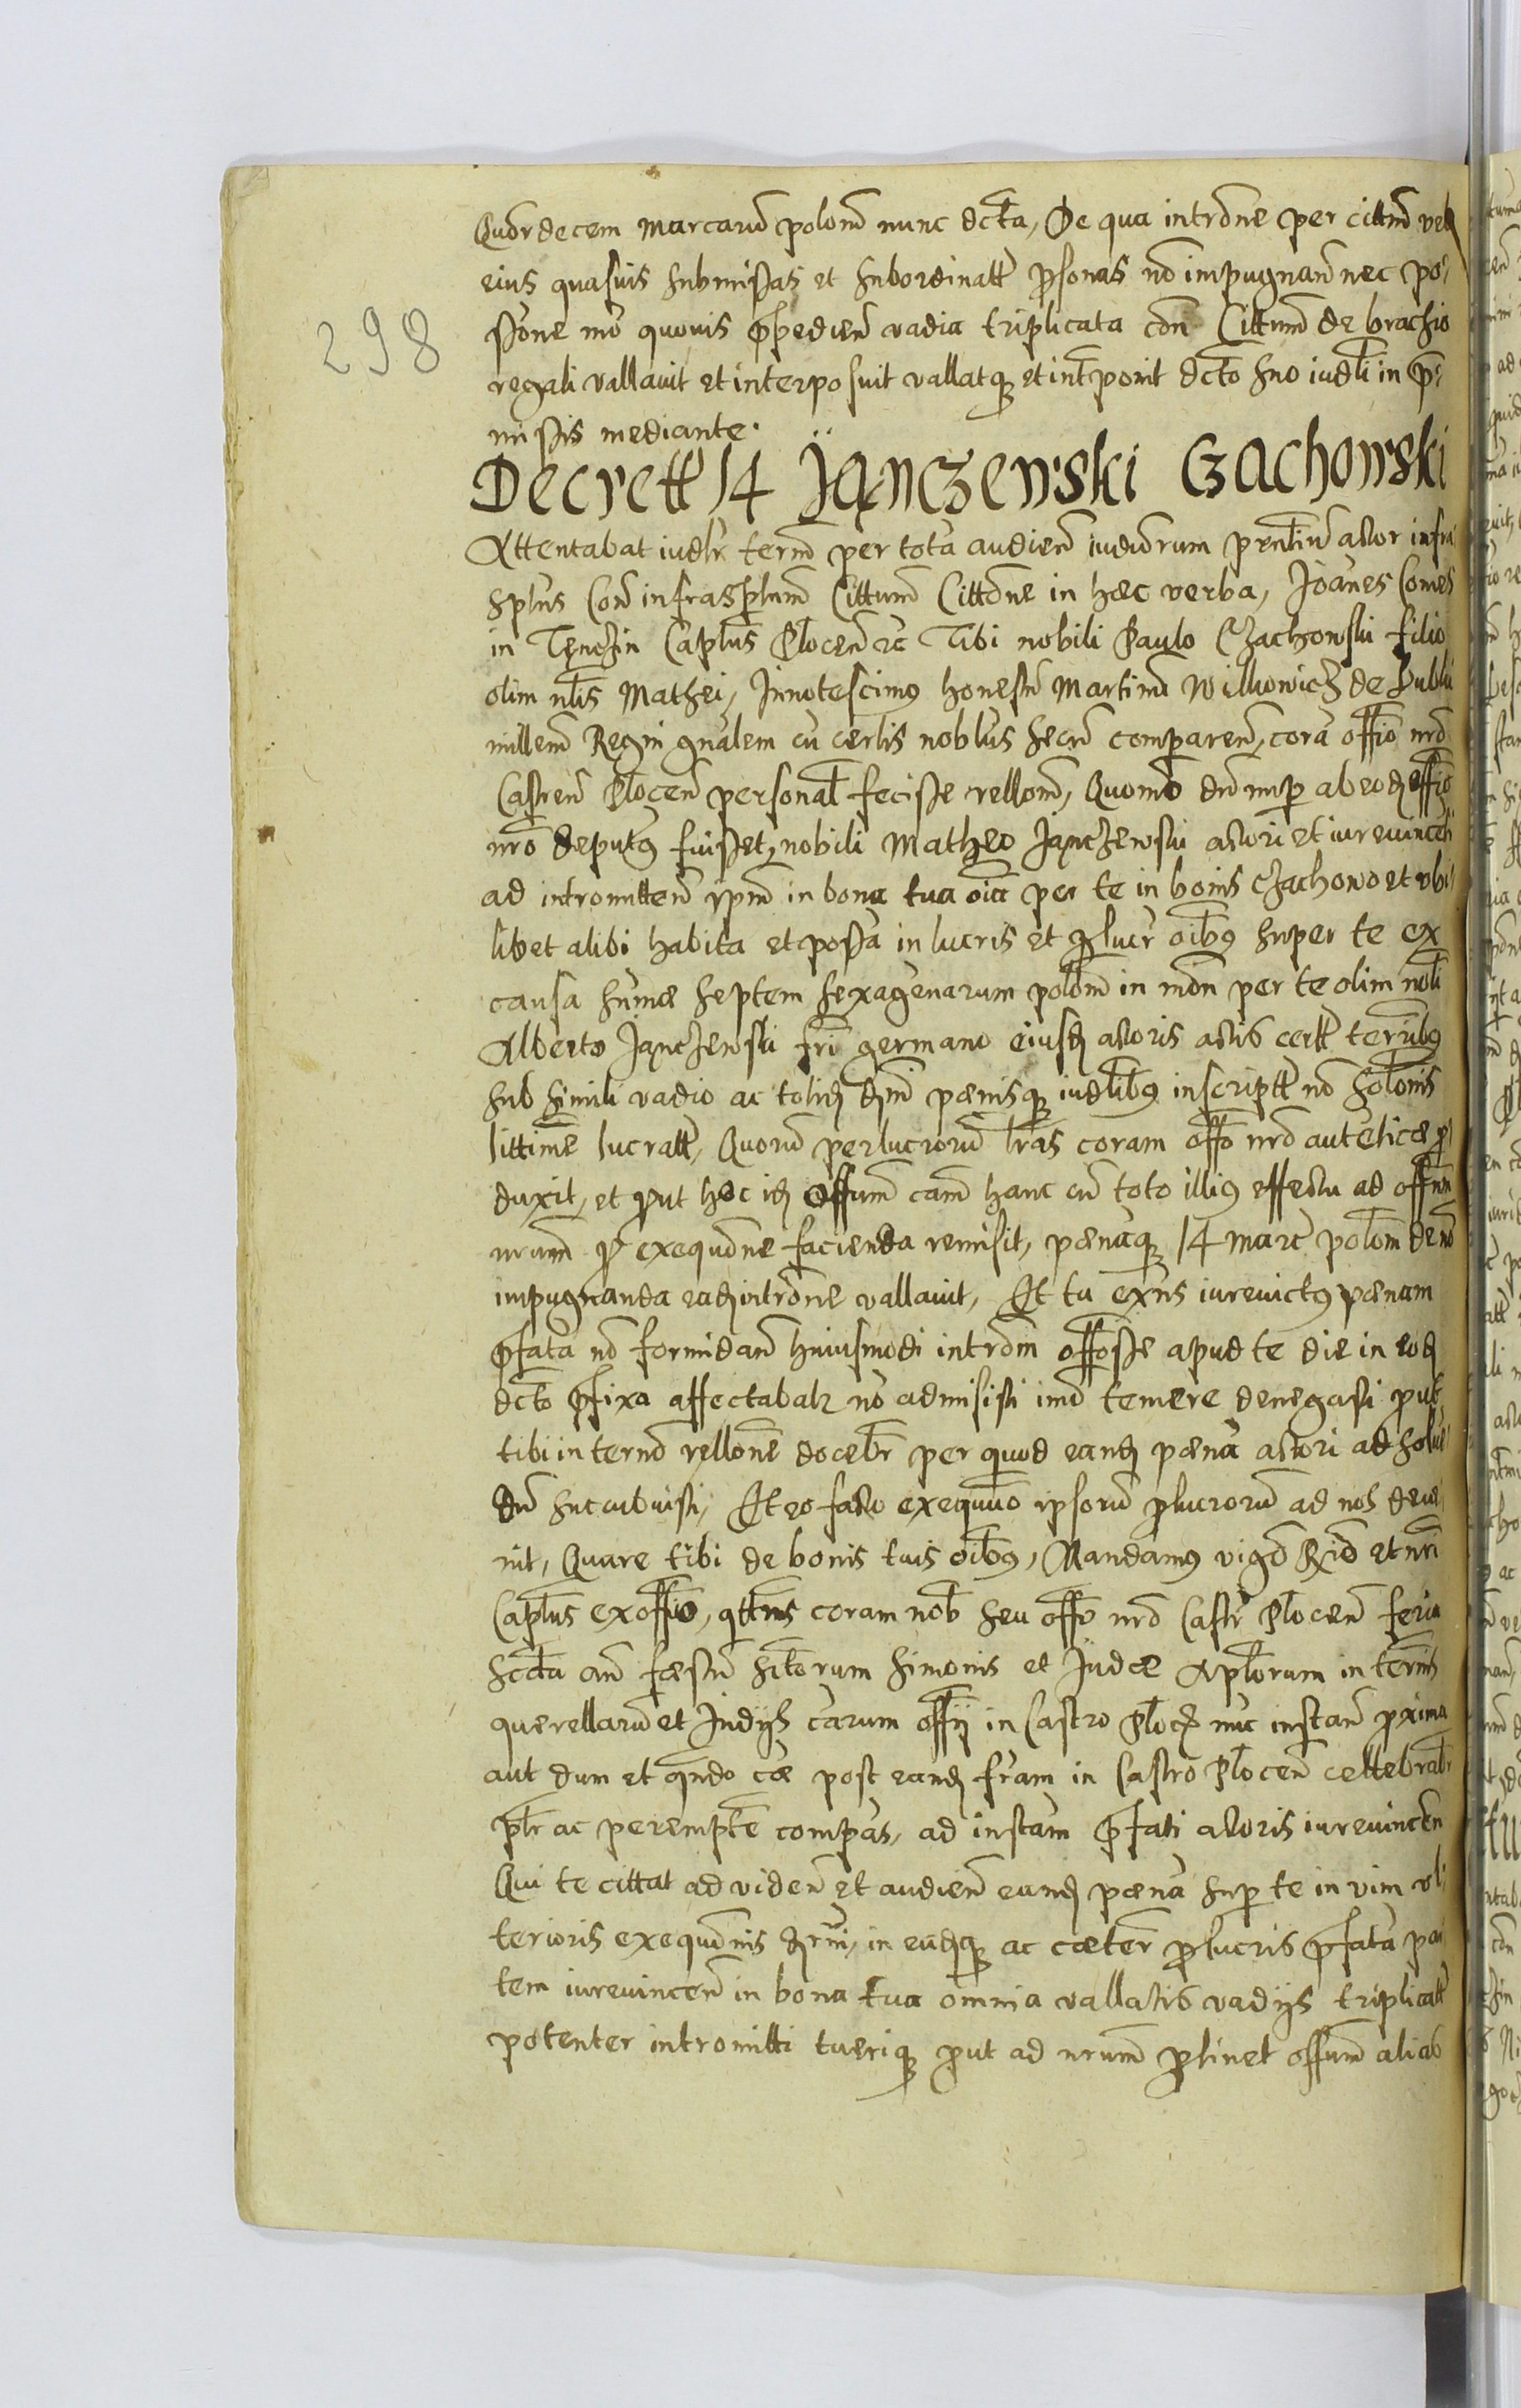 Quordecem marcarum polonm nunc dcta, De qua introne per cittm vel
eius quasuis submissas et subordinatt psonas no impugnan nec po-
ssione mo quouis pheдien vadia triplicata con Cittum de brachio
regali vallauit et interposuit vallatqz et intponit dcto suo iudli in p-
missis mediante.
Decrett 14 Jạnczewski Czachowski
298
Attentabat iudlr term per tota audien iudiorum pntiu actor infra
sptus con infrasptum Cittum Cittone in hæc verba, Joanes Comes
in Tenczin Captus Plocen rc Tibi nobili Paulo Czachowski filio
olim nlis Mathei, Innotescimus honestu Martinu Wilkowicz de
millem Regni gnalem cu certis noblus secum comparen, cora offio nro
Castren Plocen personal fecisse rellom, Quomo dum nup ab eodz offio
nro deputus fuisset, nobili Matheo Janczewski actori et iureuincen
ad intromitten ipm in bona tua oia per te in bonis Czachowo et vbi
libet alibi habita et possa in lucris et plucr oibus super te ex
causa sumæ septem sexagenarum polom in mon per te olim nbli
Alberto Janczewski fri germano eiusdz actoris actis certt terribus
sub simili vadio ac totidz dni pænisqz iudlibus inscriptt no solonis
littime lucratt, Quoru perlucrorum lras coram offo nro auteticæ p
duxit, et put hoc idz offum cam hanc cu toto illius effectu ad offum
nrum p exequone facienda remisit, pænaqz 14 marc polom de no
impugnanda eadz introne vallauit, Et tu exns iureuictus pænam
pfata no formidan huiusmodi introm offosse apud te die in eodz
dcto pfixa affectabatr no admisisti imo temere denegasti put
tibi in termo rellone docebr per quod eandz pæna actori ad solue
du succubuisti, Et eo facto exequuo ipsoru plucroru ad nos deue
nit, Quare tibi de bonis tuis oibus, Mandamus vigo Rio et nri
Captus ex offio, qttns coram nob seu offo nro Castr Plocen feria
scda an fæstu sctorum Simonis et Judæ Aplorum in termis
querellaru et Judijs carum offij in Castro Plocz nuc instan proxima
aut dum et qndo cæ post eandz fram in Castro Plocen cellebrabr
plr ac perempte compas, ad instam pfati actoris iureuincen
Qui te cittat ad viden et audien eandz pæna sup te in vim vl-
terioris exequonis , in eadzqz ac cæter plucris pfata par
tem iureuincen in bona tua omnia vallatis vadijs triplicatt
potenter intromitti tueriqz put ad nrum ptinet offum alias